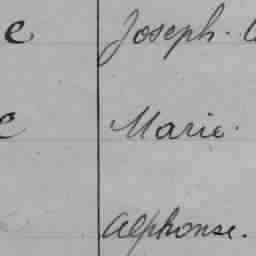 e Joseph.
e Marie.
Alphonse.